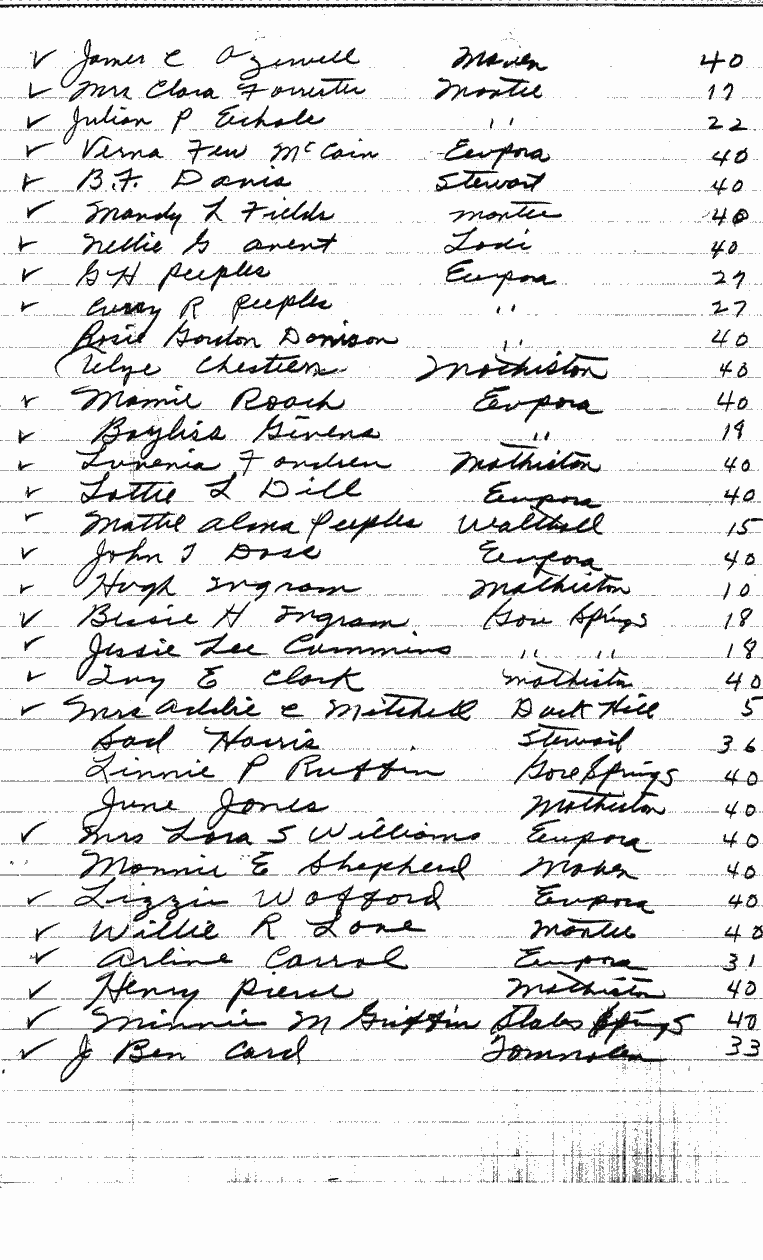 ✓ James C Ozewell Maven 40
✓ Mrs Clara Forrester Montee 17
✓ Julian P Eichole " 22
✓ Verna Few McCain Eupora 40
✓ B.F. Davis Stewart 40
✓ Mandy L Fields Montee 40
✓ Nellie G Avent Lodi 40
✓ G H Peeples Eupora 27
✓ Curry R Peeples " 27
Rosie Gordon Donison " 40
Chestien Mathiston 40
✓ Mamie Roach Eupora 40
✓ Bayliss Givens " 19
✓ Luvenia Fondren Mathiston 40
✓ Lottie L Dill Eupora 40
✓ Mattie Alma Peeples Walthall 15
✓ John T Doss Eupora 40
✓ Hugh Ingram Mathiston 10
✓ Bessie H Ingram Gore Springs 18
✓ Jessie Lee Cummins " " 18
✓ Ivy E Clark Mathiston 40
✓ Mrs Addie C Mitchell Duck Hill 5
Harris Stewart 36
Linnie P Ruffin Gore Springs 40
June Jones Mathiston 40
✓ Mrs Lora S Williams Eupora 40
Monnie E Shepherd Maben 40
✓ Lizzie Wofford Eupora 40
✓ Willie R Lone Montee 40
✓ Arline Carrol Eupora 31
✓ Henry Pierce Mathiston 40
✓ Minnie M Griffin Slates Springs 40
✓ J Ben Card Tomnolen 33